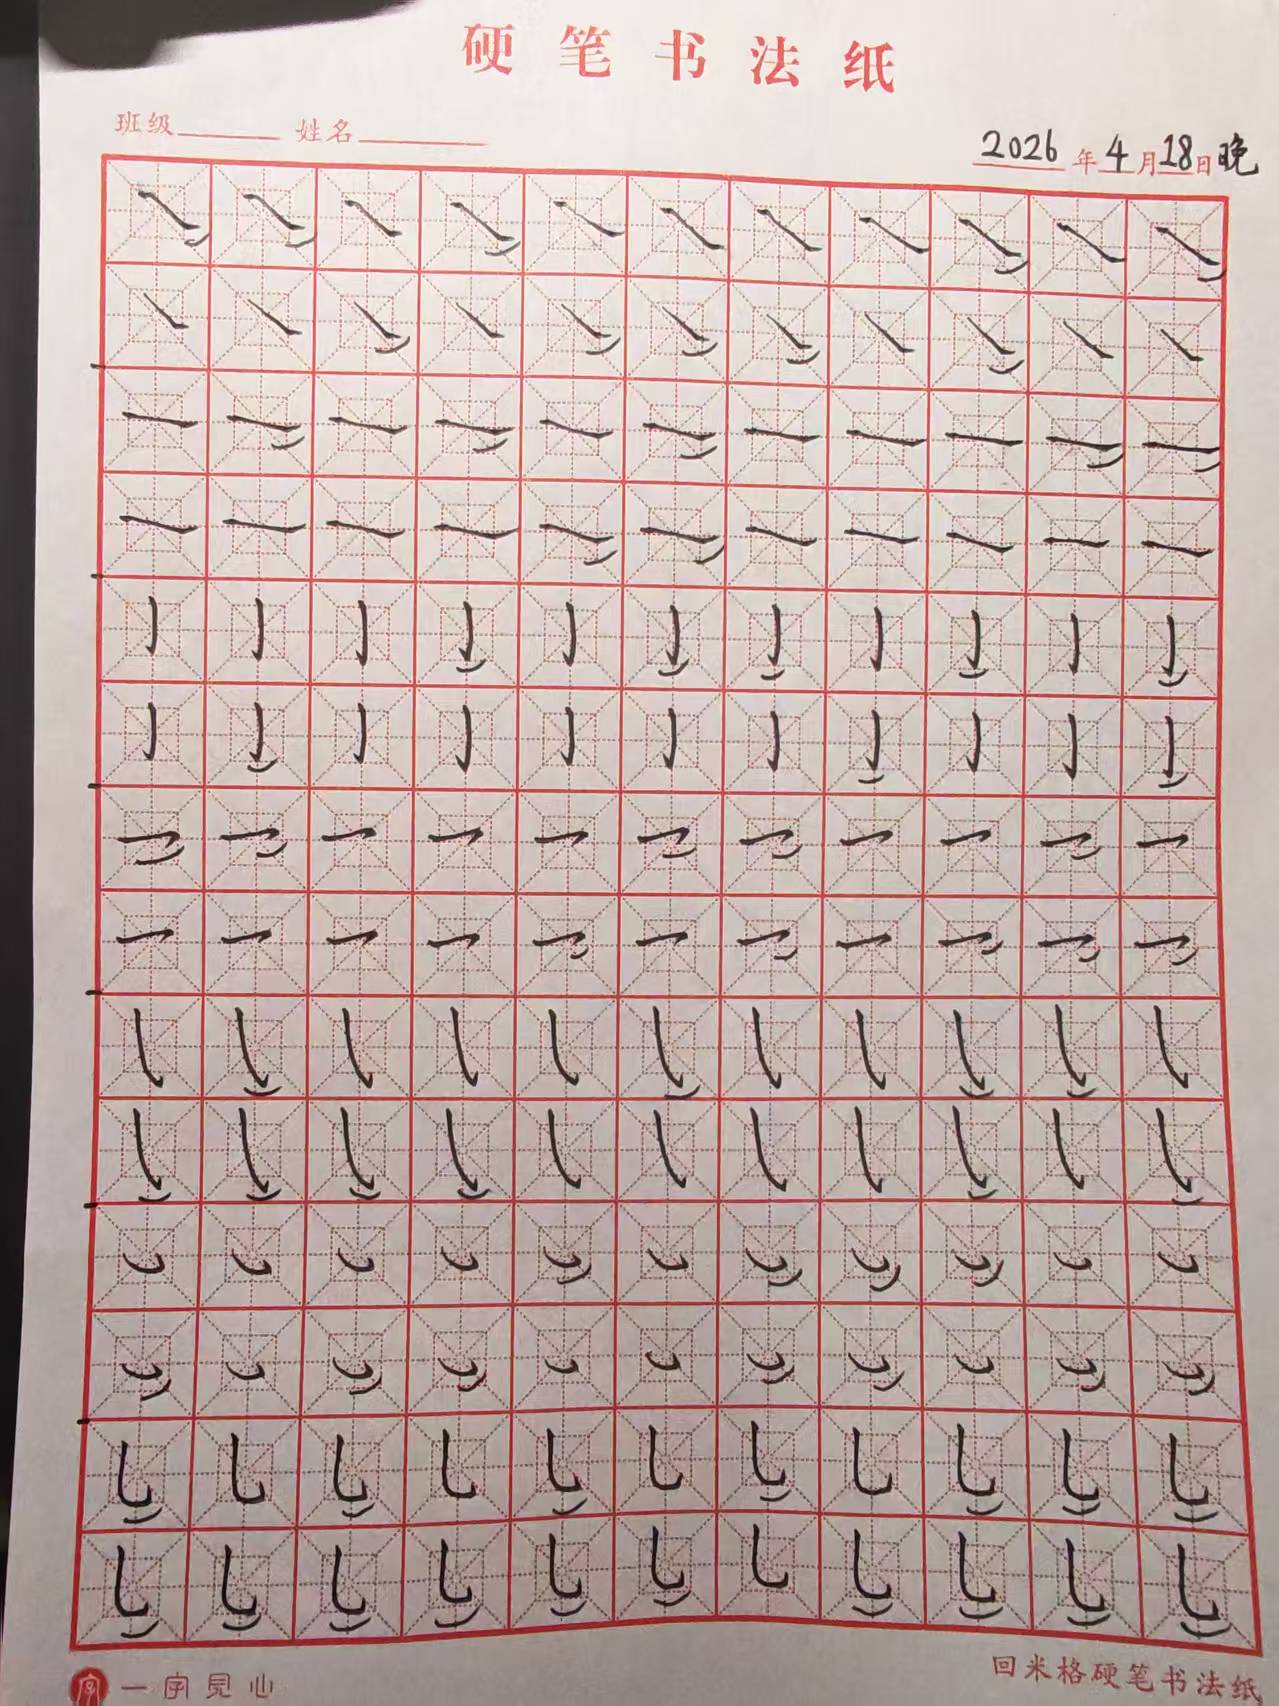 硬笔书法纸
班级 姓名
2026年4月18日晚
一字見心
回米格硬笔书法纸